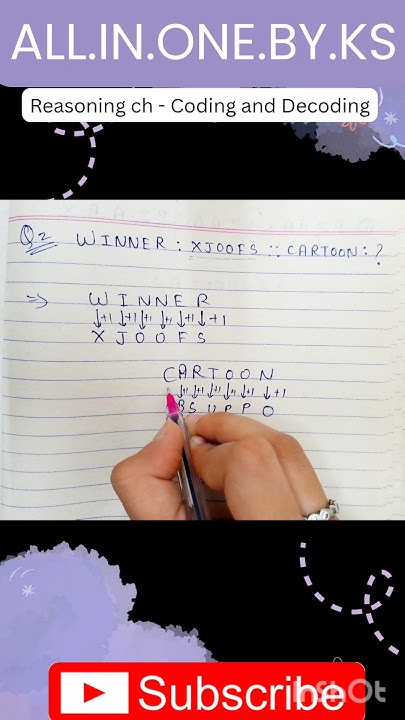 ALL.IN.ONE.BY.KS
Reasoning ch - Coding and Decoding
Q.2 WINNER : XJOOFS :: CARTOON : ?
⇒ WINNER
↓+1 ↓+1 ↓+1 ↓+1 ↓+1 ↓+1
XJOOFS
CARTOON
↓+1 ↓+1 ↓+1 ↓+1 ↓+1 ↓+1
BSUPPO
Subscribe